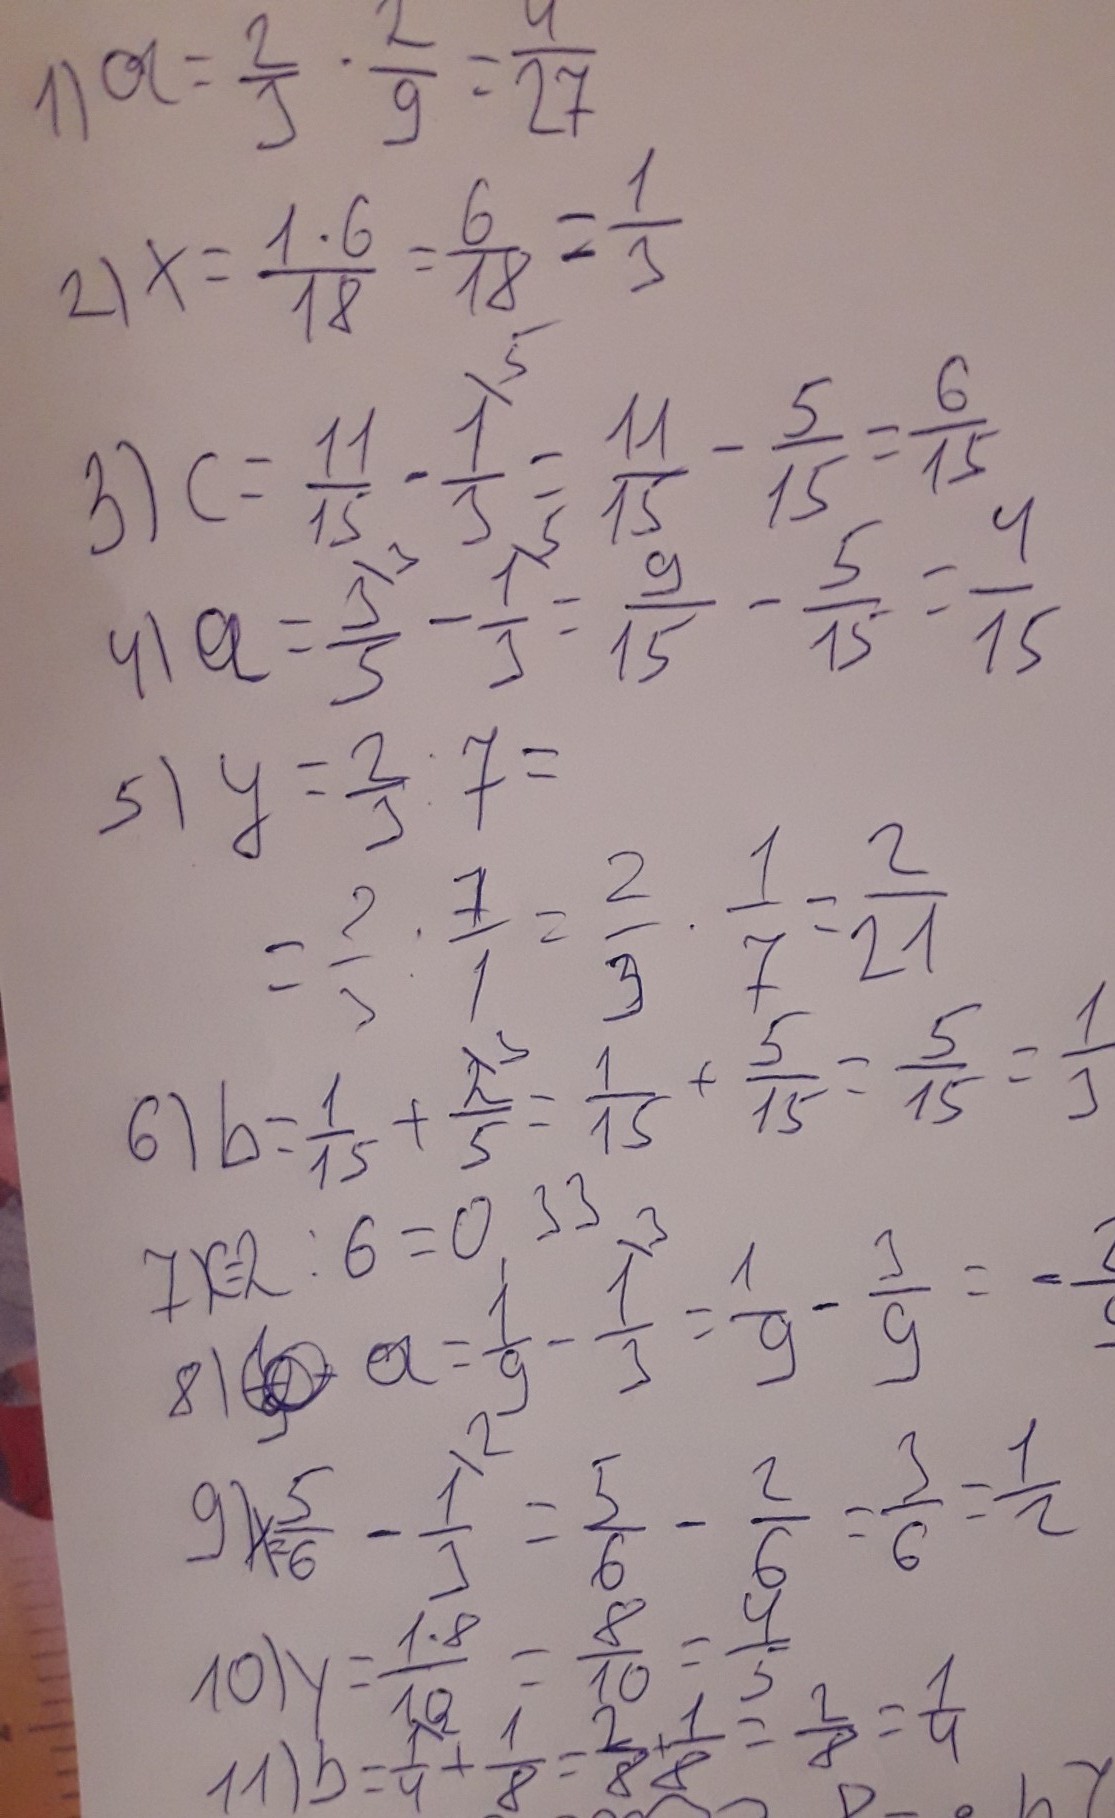 1) a = 2/3 · 2/9 = 4/27
2) x = 1·6/18 = 6/18 = 1/3
3) c = 11/15 - 1\5/3 = 11/15 - 5/15 = 6/15
4) a = 3\3/5 - 1\5/3 = 9/15 - 5/15 = 4/15
5) y = 2/3 : 7 =
= 2/3 : 7/1 = 2/3 · 1/7 = 2/21
6) b = 1/15 + 2\3/5 = 1/15 + 5/15 = 5/15 = 1/3
7) x=2 : 6 = 0,33
8) a = 1/9 - 1\3/3 = 1/9 - 3/9 = - 2/9
9) x= 5/6 - 1\2/3 = 5/6 - 2/6 = 3/6 = 1/2
10) y = 1·8/10 = 8/10 = 4/5
11) b = 1\2/4 + 1/8 = 2/8 + 1/8 = 2/8 = 1/4